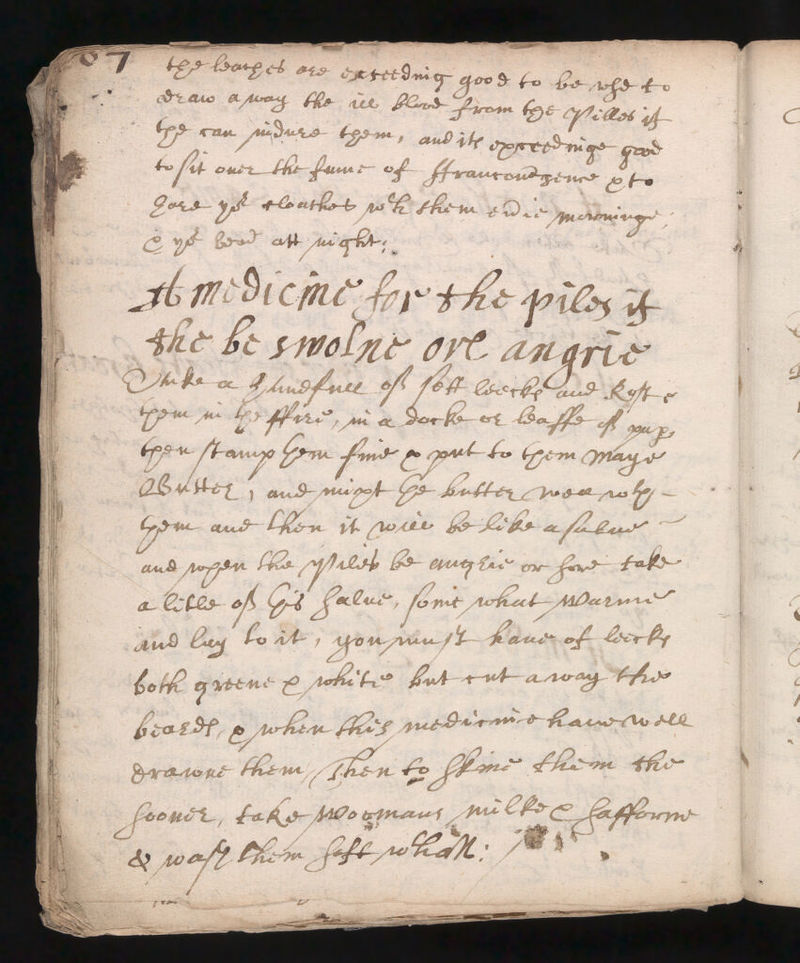 87
the leaches are exceeding good to be vsed to
draw away the ill blood from the Pilles if
the can indure them, and its exceedinge good
to sit ouer the fume of ffrancomgence & to
haue yor cloathes wth them eidie morninge,
& yor bead att night:
A medicine for the piles if
the be swolne ore angrie
Take a handfull of sett leecks and Rost
them in the ffire, in a docke or leaffe of
then stamp them fine & put to them Maye
Butter, and mixt the butter well wth
them and then it will be like a salue
and when the Piles be angrie or sore take
a litle of this salue, some what Warme
and lay to it, you must haue of leecks
both greene & white but cut away the
beards, & when this medicine haue well
drawne them, Then to skine them the
sooner, take Woemans milke & safforne
& wash them soft wthall: